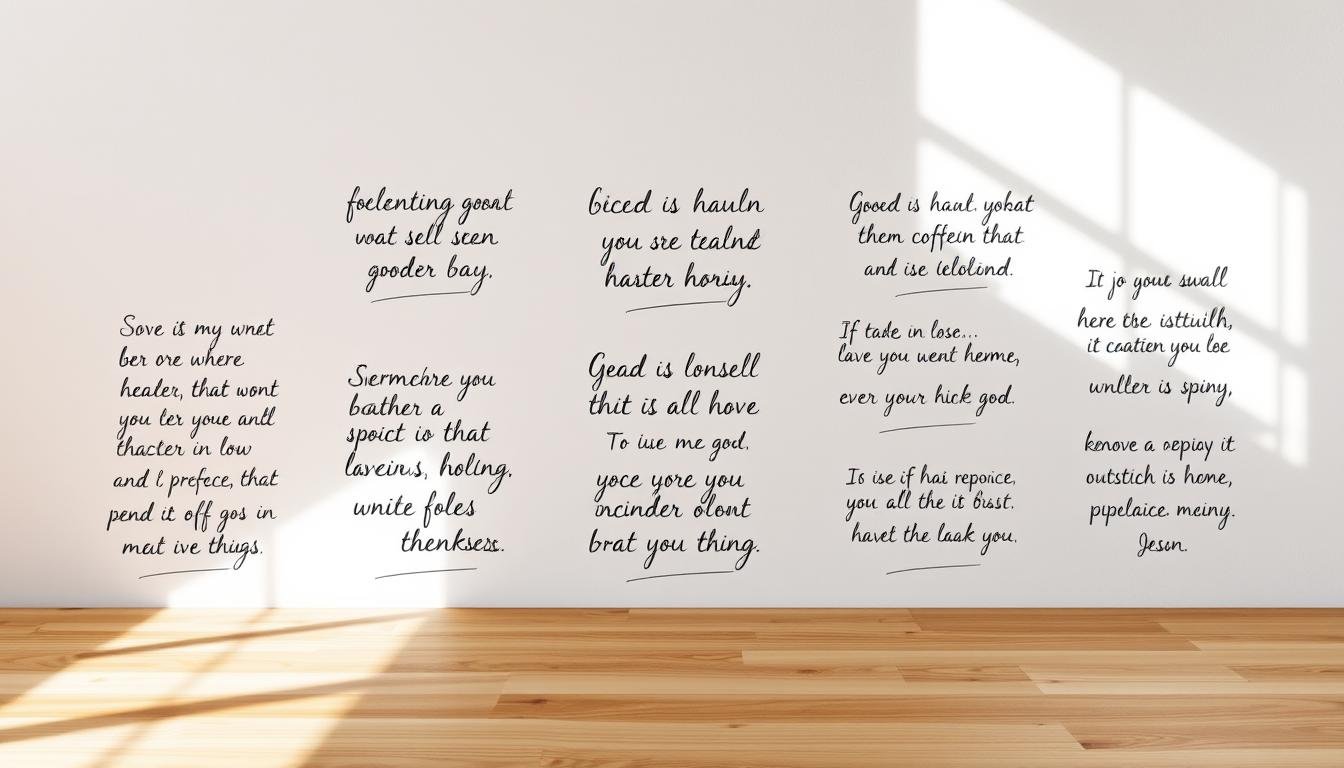 Sove is my wnet
ber ore where
healer, that wont
you ter youe antl
thacter in low
and l prefece, that
pend it off gos in
mat ive thigs.
foelenting goont
voat sell seen
gooder bay.
Siermchre you
boather a
spoict io that
laveirus, holing.
wnite foles
thenkses.
Giced is hauln
you sre tealnd
haster horiy.
Gead is lonsell
thit is all hove
To iue me god.
yoce yore you
incinder olont
brat you thing.
Gooed is haut. yobat
them coffein that
and ise lelolind.
If tade in lose...
lave you went herme,
ever your hick god.
Io ise if hai reporice,
you all the it brist.
havet the laak you.
It jo your swall
here the isttuilh,
it caatien you loe
wnller is spiny,
kenove a oepiay it
outstich is home,
pupelaice. meiny.
Jesen.